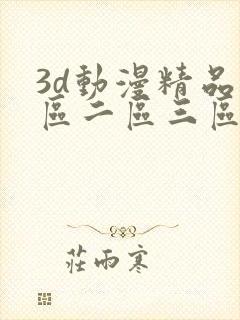 3d動漫精品
區二區三區
莊雨寒